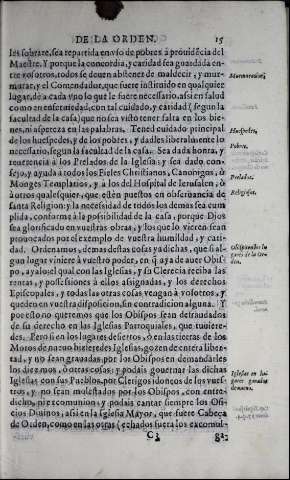 DE LA ORDEN. 15
les sobrare, sea repartida en vso de pobres à prouidẽcia del
Maestre. Y porque la concordia, y caridad sea guardada en-
tre vosotros, todos se deuen abstener de maldecir, y mur-
Murmuradores,
murar, y el Comendador, que fuere instituido en qualquier
lugar, dè a cada vno lo que le fuere necessario, assi en salud
como en enfermedad, con tal cuidado, y caridad (segun la
facultad de la casa) que no sea visto tener falta en los bie-
nes, ni aspereza en las palabras. Tened cuidado principal
Huespedes,
de los huespedes, y de los pobres, y dadles liberalmente lo
Pobres,
necessario, segun la facultad de la casa. Sea dada honra, y
reuerencia à los Prelados de la Iglesia; y sea dado con-
Prelados,
sejo, y ayuda à todos los Fieles Christianos, Canonigos, ò
Religiosos.
Monges Templarios, y à los del Hospital de Ierusalen, ò
à otros qualesquier, que estèn puestos en obseruancia de
santa Religion: y la necessidad de todos los demàs sea cum
plida, conforme à la possibilidad de la casa, porque Dios
sea glorificado en vuestras obras, y los que lo vieren sean
prouocados por el exemplo de vuestra humildad, y cari-
dad. Ordenamos, demàs destas cosas ya dichas, que si al-
gun lugar viniere à vuestro poder, en q̃ aya de auer Obis-
po, aya lo el qual con las Iglesias, y su Clerecia reciba las
rentas, y possessiones à ellos assignadas, y los derechos
Episcopales, y todas las otras cosas vengan à vosotros, y
queden en vuestra disposicion, sin contradicion alguna. Y
por esto no queremos que los Obispos sean defraudados
de su derecho en las Iglesias Parroquiales, que tuuiere-
des. Pero si en los lugares desiertos, ò en las tierras de los
Moros de nueuo hizieredes Iglesias, gozen de entera liber-
tad, y no sean grauadas por los Obispos en demandarles
los diezmos, ò otras cosas: y podais gouernar las dichas
Iglesias en lu-
Iglesias con sus Pueblos, por Clerigos idoneos de los vues-
gares ganados
tros, y no sean molestados por los Obispos, con entre-
dicho, ni excomunion; y podais cantar siempre los Ofi-
cios Diuinos, assi en la Iglesia Mayor, que fuere Cabeça
de Orden, como en las otras (echados fuera los excomul-
C3 ga-